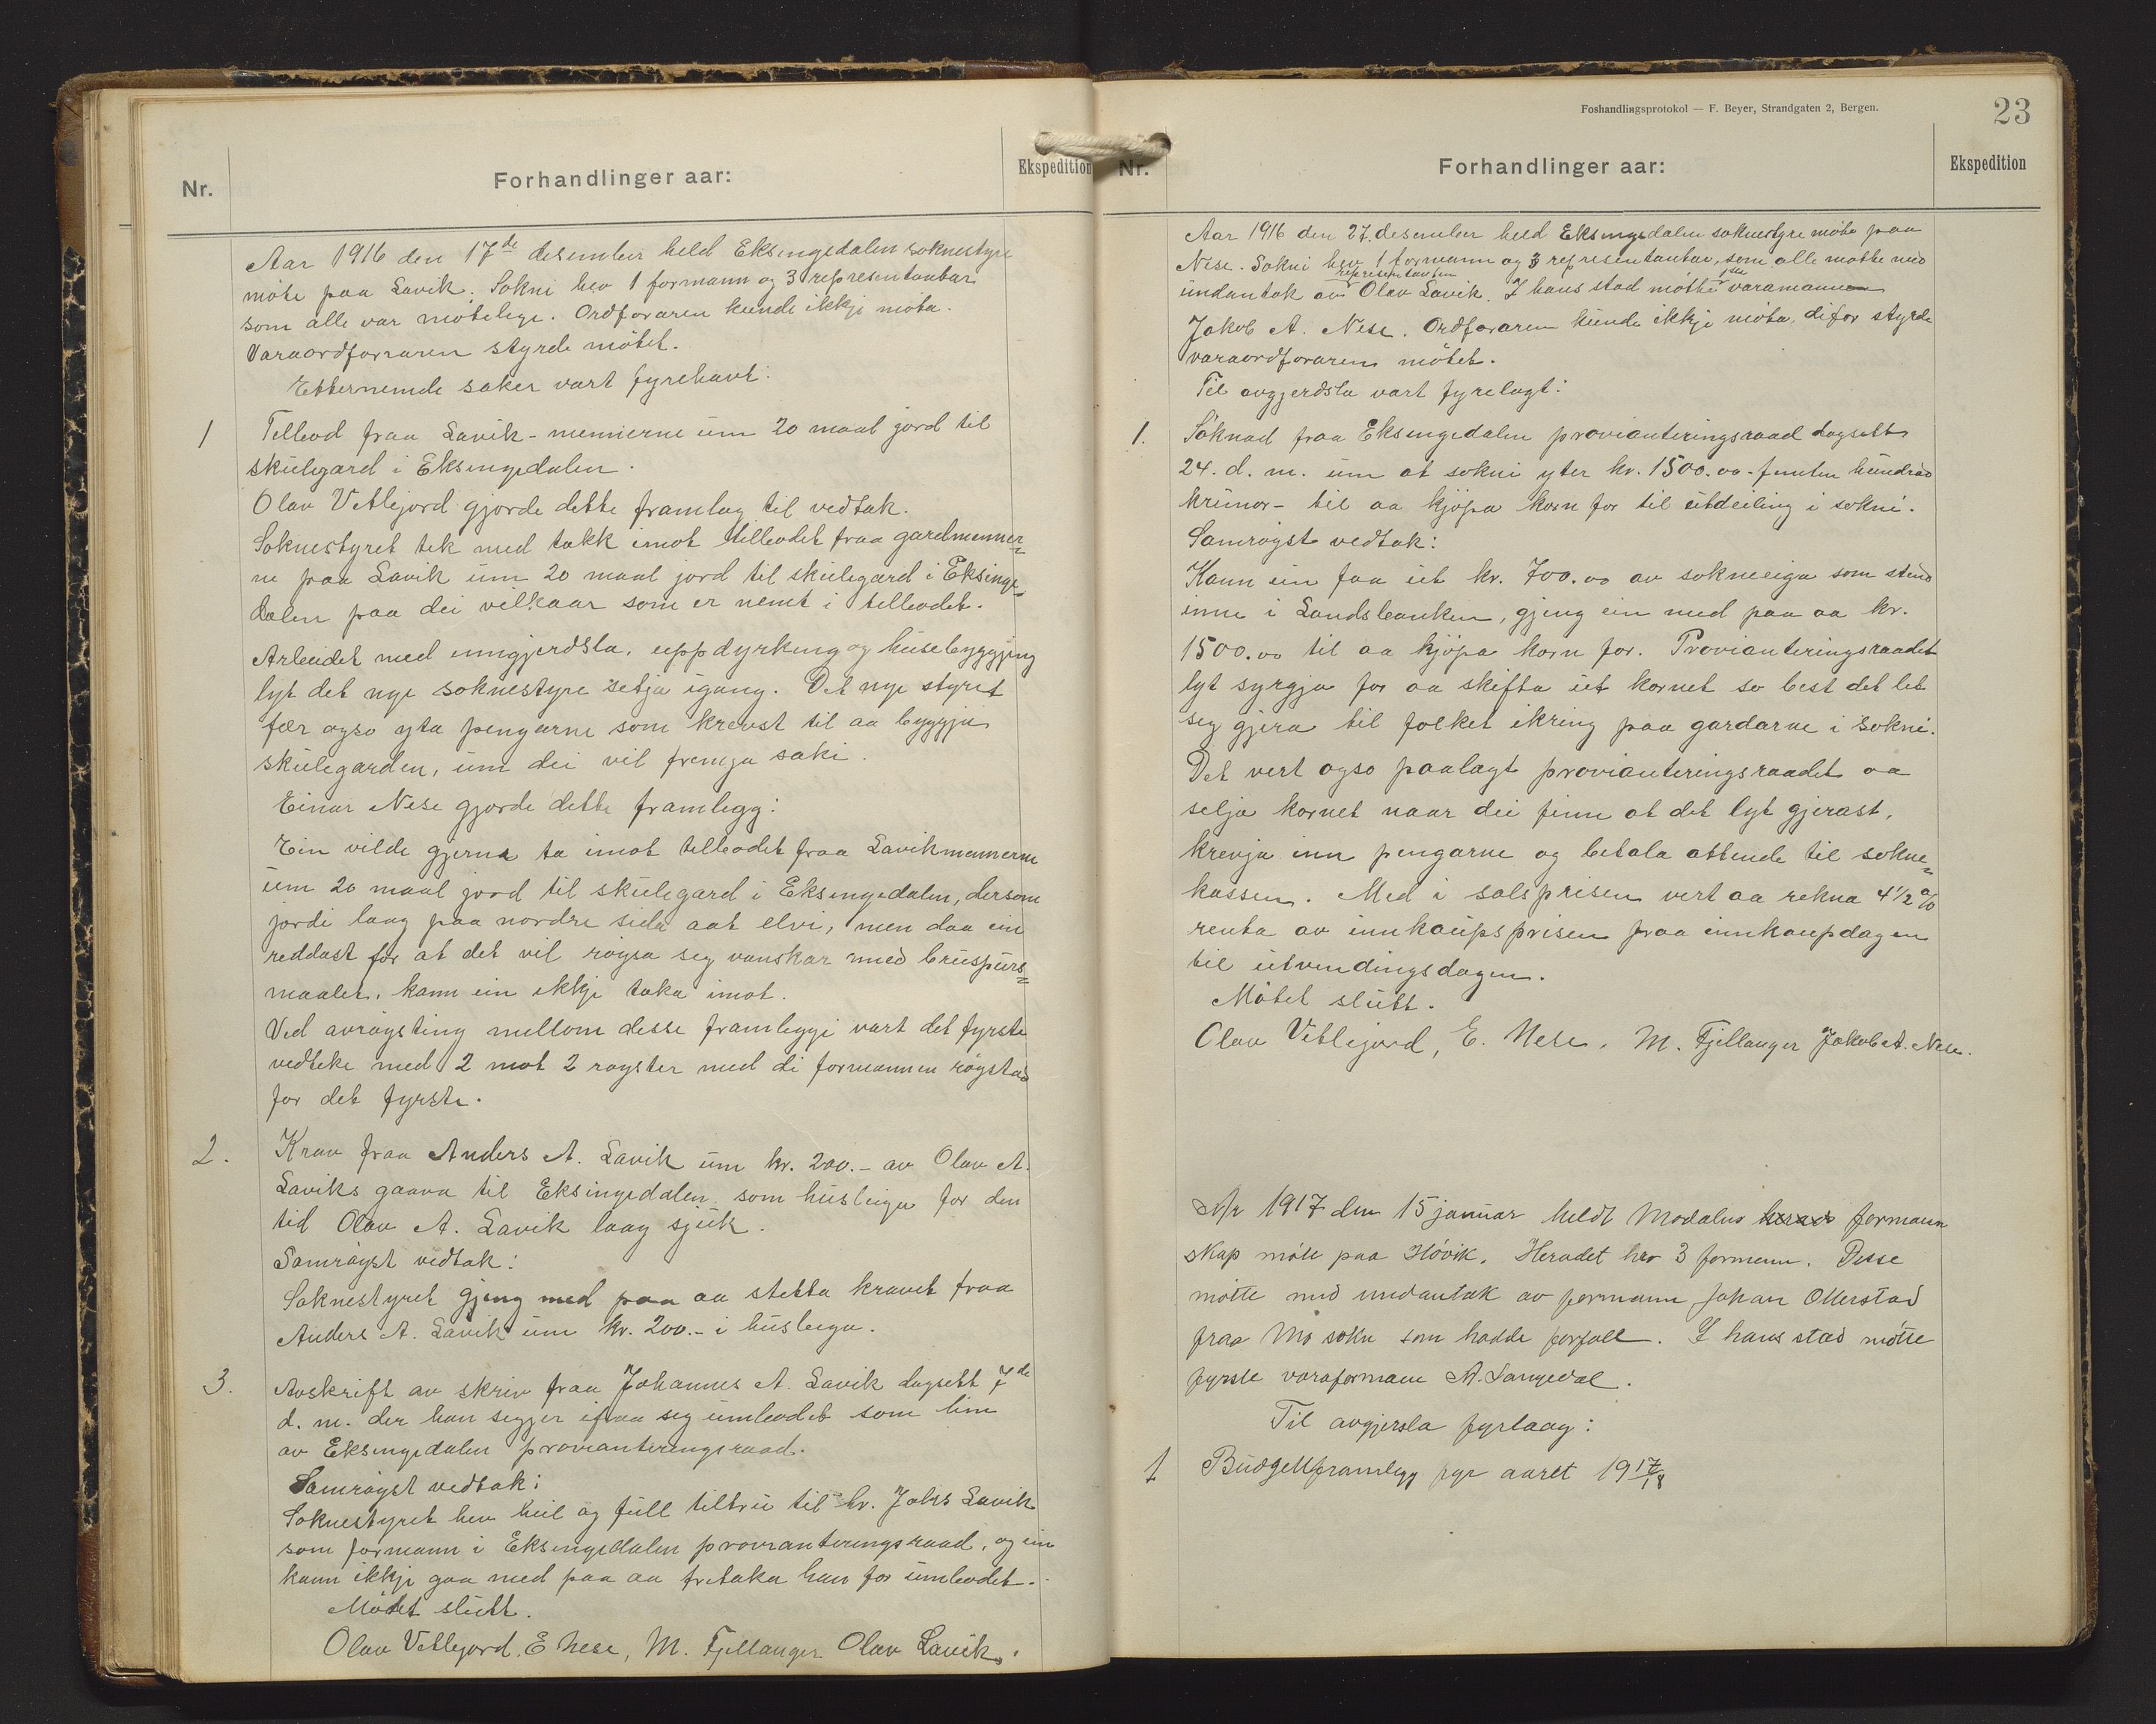 Nr.
Forhandlinger aar:
Ekspedition
Aar 1916 den 17de desember held Eksingedalen soknestyre
møte paa Lavik. Sokni hev 1 formann og 3 representantar
som alle var møtelege. Ordføraren kunde ikkje møta.
Varaordføraren styrde møtet.
Etternemde saker vart fyrehavt:
1 Tilbod fraa Lavik-mennerne um 20 maal jord til
skulegard i Eksingedalen.
Olav Vetlejord gjorde dette framlag til vedtak.
Soknestyret tek med takk imot tilbodet fraa gardmenner=
ne paa Lavik um 20 maal jord til skulegard i Eksinge=
dalen paa dei vilkaar som er nemt i tilbodet.
Arbeidet med inngjerdsla, uppdyrking og husebyggjing
lyt det nye soknestyre setja igang. Det nye styret
fær ogso yta pengarne som krevst til aa byggja
skulegarden, um dei vil fremja saki.
Einar Nese gjorde dette framlegg:
Ein vilde gjerna ta imot tilbodet fraa Lavikmennerne
um 20 maal jord til skulegard i Eksingedalen, dersom
jordi laag paa nordre sida aat elvi, men daa ein
reddast for at det vil røysa seg vanskar med bruspurs=
maalet, kann ein ikkje taka imot.
Ved avrøysting millom desse framleggi vart det fyrste
vedteke med 2 mot 2 røyster med di formannen røystad
for det fyrste.
2. Krav fraa Anders A. Lavik um kr. 200.- av Olav A.
Laviks gaava til Eksingedalen, som husleiga for den
tid Olav A. Lavik laag sjuk.
Samrøyst vedtak:
Soknestyret gjeng med paa aa stetta kravet fraa
Anders A. Lavik um kr. 200.- i husleiga.
3. Avskrift av skriv fraa Johannes A. Lavik dagsett 7de
d. m. der han segjer ifraa seg umbodet som lim
av Eksingedalen provianteringsraad.
Samrøyst vedtak:
Soknestyret hev heil og full tiltru til hr. Johs Lavik
som formann i Eksingedalen provianteringsraad, og ein
kann ikkje gaa med paa aa fritaka han for umbodet.
Møtet slutt.
Olav Vetlejord, E Nese, M. Fjellanger Olav Lavik.
Foshandlingsprotokol — F. Beyer, Strandgaten 2, Bergen.
23
Nr.
Forhandlinger aar:
Ekspedition
Aar 1916 den 27. desember held Eksingedalen soknestyre møte paa
Nese. Sokni hev 1 formann og 3 representantar, som alle møtte med
undantak av representanten Olav Lavik. I hans stad møtte 1ste varamann
Jakob A. Nese. Ordføraren kunde ikkje møta, difor styrde
varaordføraren møtet.
Til avgjerdsla vart fyrelagt:
1. Søknad fraa Eksingedalen provianteringsraad dagsett
24. d. m. um at sokni yter kr. 1500.00 - femten hundrad
krunor - til aa kjøpa korn for til utdeiling i sokni.
Samrøyst vedtak:
Kann ein faa ut kr. 700.00 av sokneeiga som stend
inne i Landsbanken, gjeng ein med paa aa kr.
1500.00 til aa kjøpa korn for. Provianteringsraadet
lyt syrgja for aa skifta ut kornet so best det let
seg gjera til folket ikring paa gardarne i sokni.
Det vert ogso paalagt provianteringsraadet aa
selja kornet naar dei finn at det lyt gjerast,
krevja inn pengarne og betala attende til sokne=
kassen. Med i salsprisen vert aa rekna 4 1/2 %
renta av innkaupsprisen fraa innkaupdagen
til utvendingsdagen.
Møtet slutt.
Olav Vetlejord, E. Nese, M. Fjellanger Jakob A. Nese.
Aar 1917 den 15 januar heldt Modalen herads formann
skap møte paa Høvik. Heradet hev 3 formenn. Desse
møtte med undantak av formann Johan Otterstad
fraa Mo sokn som hadde forfall. I hans stad møtte
fyrste varaformann A. Langedal.
Til avgjersla fyrlaag:
1 Budgettframlegg fyr aaret 1917/18